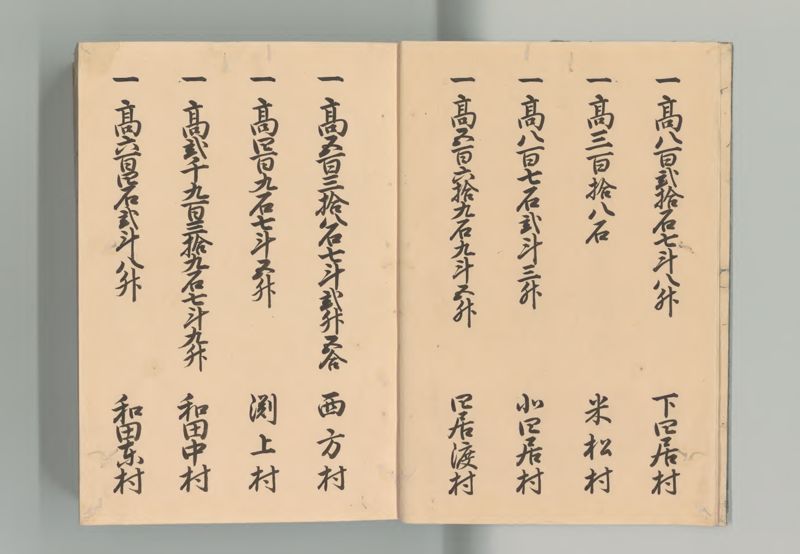 一 高八百弐拾石七斗八升 下四居村
一 高三百拾八石 米松村
一 高八百七石弐斗三升 北四居村
一 高五百六拾九石九斗五升 四居渡村
一 高五百三拾八石七斗弐升五合 西方村
一 高四百九石七斗五升 渕上村
一 高弐千九百三拾九石七斗九升 和田中村
一 高六百四石弐斗八升 和田東村